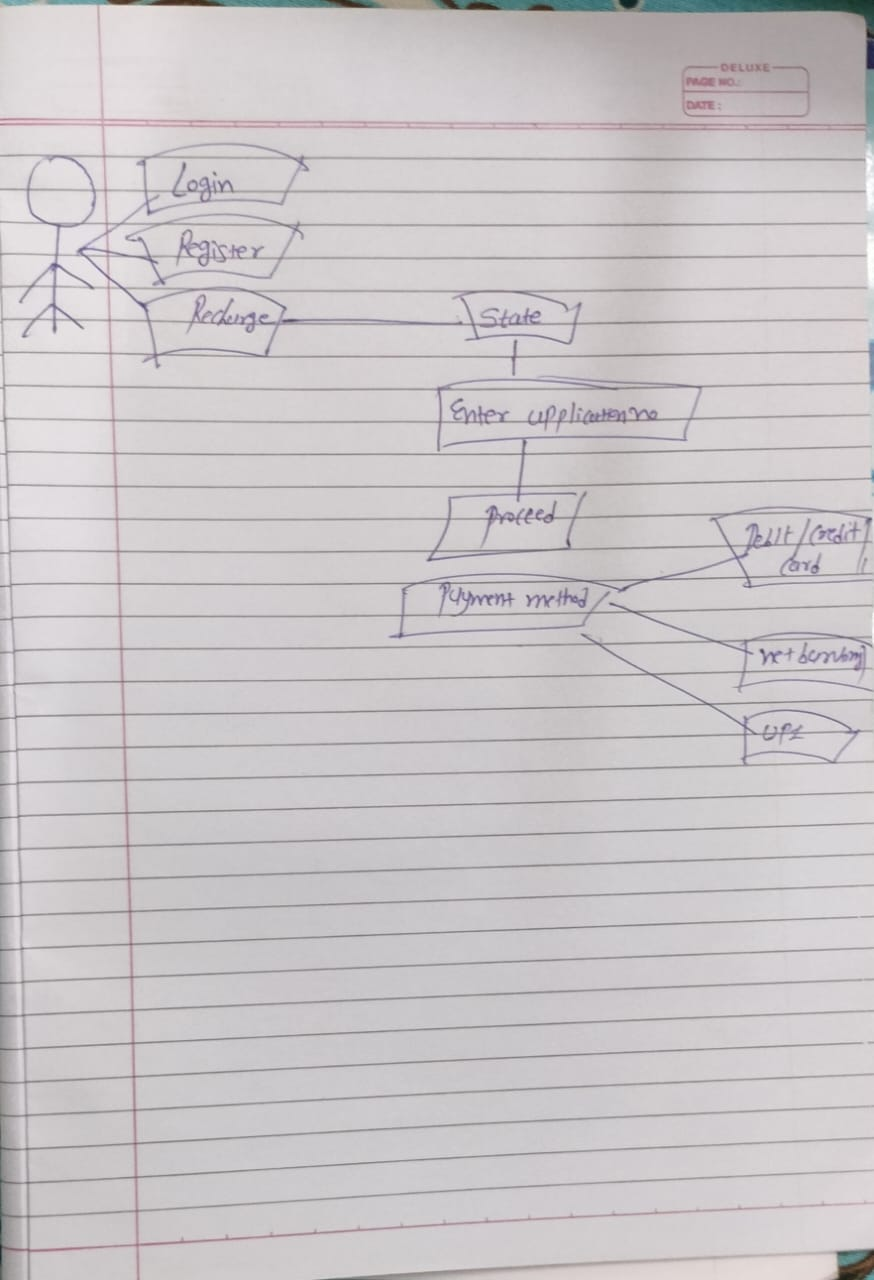 DELUXE
PAGE NO.:
DATE:
Login
Register
Recharge
State
Enter application no
Proceed
Payment method
Debit/Credit
Card
net banking
UPI